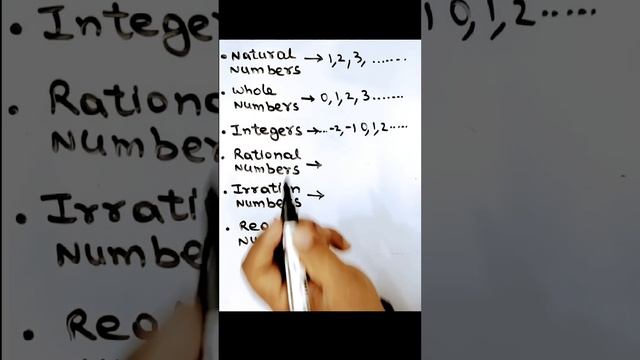 • Natural → 1, 2, 3, .......
Numbers
• Whole
Numbers → 0, 1, 2, 3.......
• Integers → ...-2, -1 0, 1, 2.....
• Rational
Numbers →
• Irration
Numbers →
• Rea
Nu